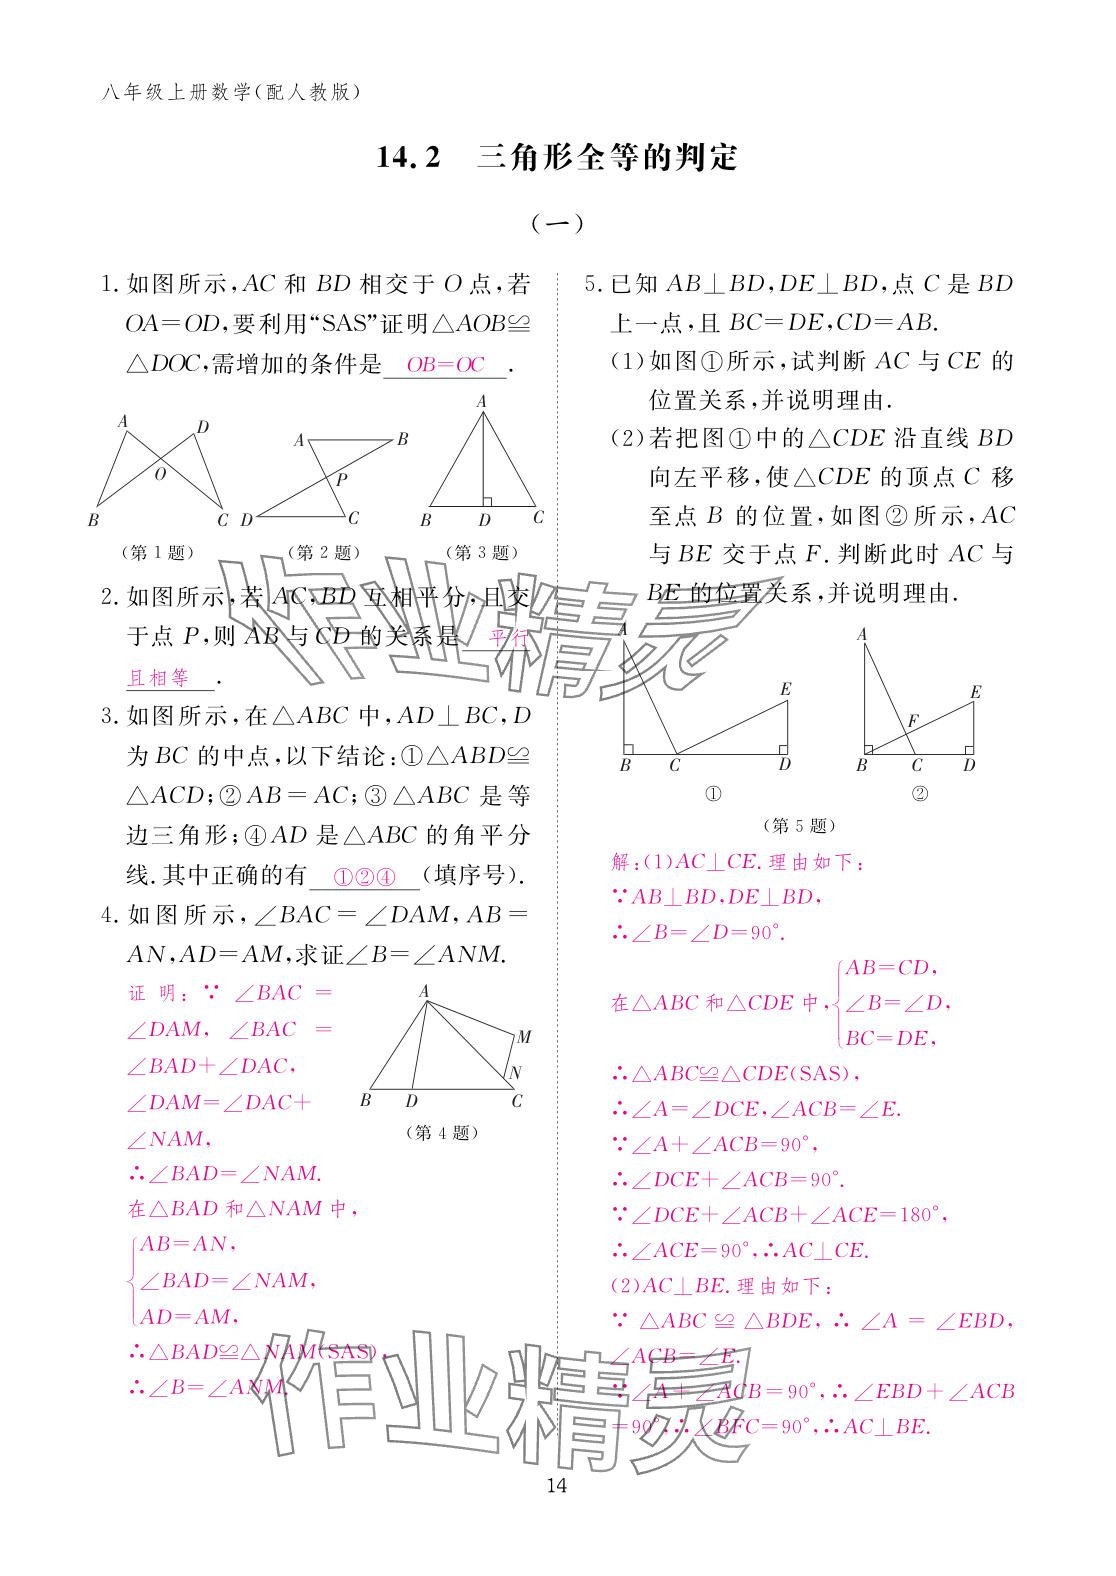 八年级上册数学(配人教版)
14.2 三角形全等的判定
(一)
1. 如图所示,AC 和 BD 相交于 O 点,若
OA=OD,要利用“SAS”证明△AOB≌
△DOC,需增加的条件是 OB=OC .
A
D
O
B
C
(第 1 题)
A
B
P
D
C
(第 2 题)
A
B
D
C
(第 3 题)
2. 如图所示,若 AC,BD 互相平分,且交
于点 P,则 AB 与 CD 的关系是 平行
且相等 .
3. 如图所示,在△ABC 中,AD⊥BC,D
为 BC 的中点,以下结论:①△ABD≌
△ACD;②AB=AC;③△ABC 是等
边三角形;④AD 是△ABC 的角平分
线.其中正确的有 ①②④ (填序号).
4. 如图所示,∠BAC=∠DAM,AB=
AN,AD=AM,求证∠B=∠ANM.
证明:∵∠BAC=
∠DAM,∠BAC=
∠BAD+∠DAC,
∠DAM=∠DAC+
∠NAM,
∴∠BAD=∠NAM.
在△BAD 和△NAM 中,
AB=AN,
∠BAD=∠NAM,
AD=AM,
∴△BAD≌△NAM(SAS),
∴∠B=∠ANM.
A
M
N
B
D
C
(第 4 题)
5. 已知 AB⊥BD,DE⊥BD,点 C 是 BD
上一点,且 BC=DE,CD=AB.
(1)如图①所示,试判断 AC 与 CE 的
位置关系,并说明理由.
(2)若把图①中的△CDE 沿直线 BD
向左平移,使△CDE 的顶点 C 移
至点 B 的位置,如图②所示,AC
与 BE 交于点 F.判断此时 AC 与
BE 的位置关系,并说明理由.
A
E
B
C
D
①
A
E
F
B
C
D
②
(第 5 题)
解:(1)AC⊥CE.理由如下:
∵AB⊥BD,DE⊥BD,
∴∠B=∠D=90°.
AB=CD,
在△ABC 和△CDE 中, ∠B=∠D,
BC=DE,
∴△ABC≌△CDE(SAS),
∴∠A=∠DCE,∠ACB=∠E.
∵∠A+∠ACB=90°,
∴∠DCE+∠ACB=90°.
∵∠DCE+∠ACB+∠ACE=180°,
∴∠ACE=90°,∴AC⊥CE.
(2)AC⊥BE.理由如下:
∵△ABC≌△BDE,∴∠A=∠EBD,
∠ACB=∠E.
∵∠A+∠ACB=90°,∴∠EBD+∠ACB
=90°,∴∠BFC=90°,∴AC⊥BE.
作业精灵
作业精灵
14